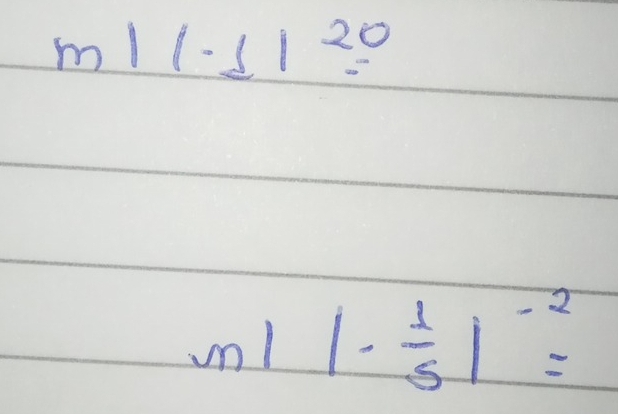 m) (-1)²⁰ =
n) (-1/5)⁻² =